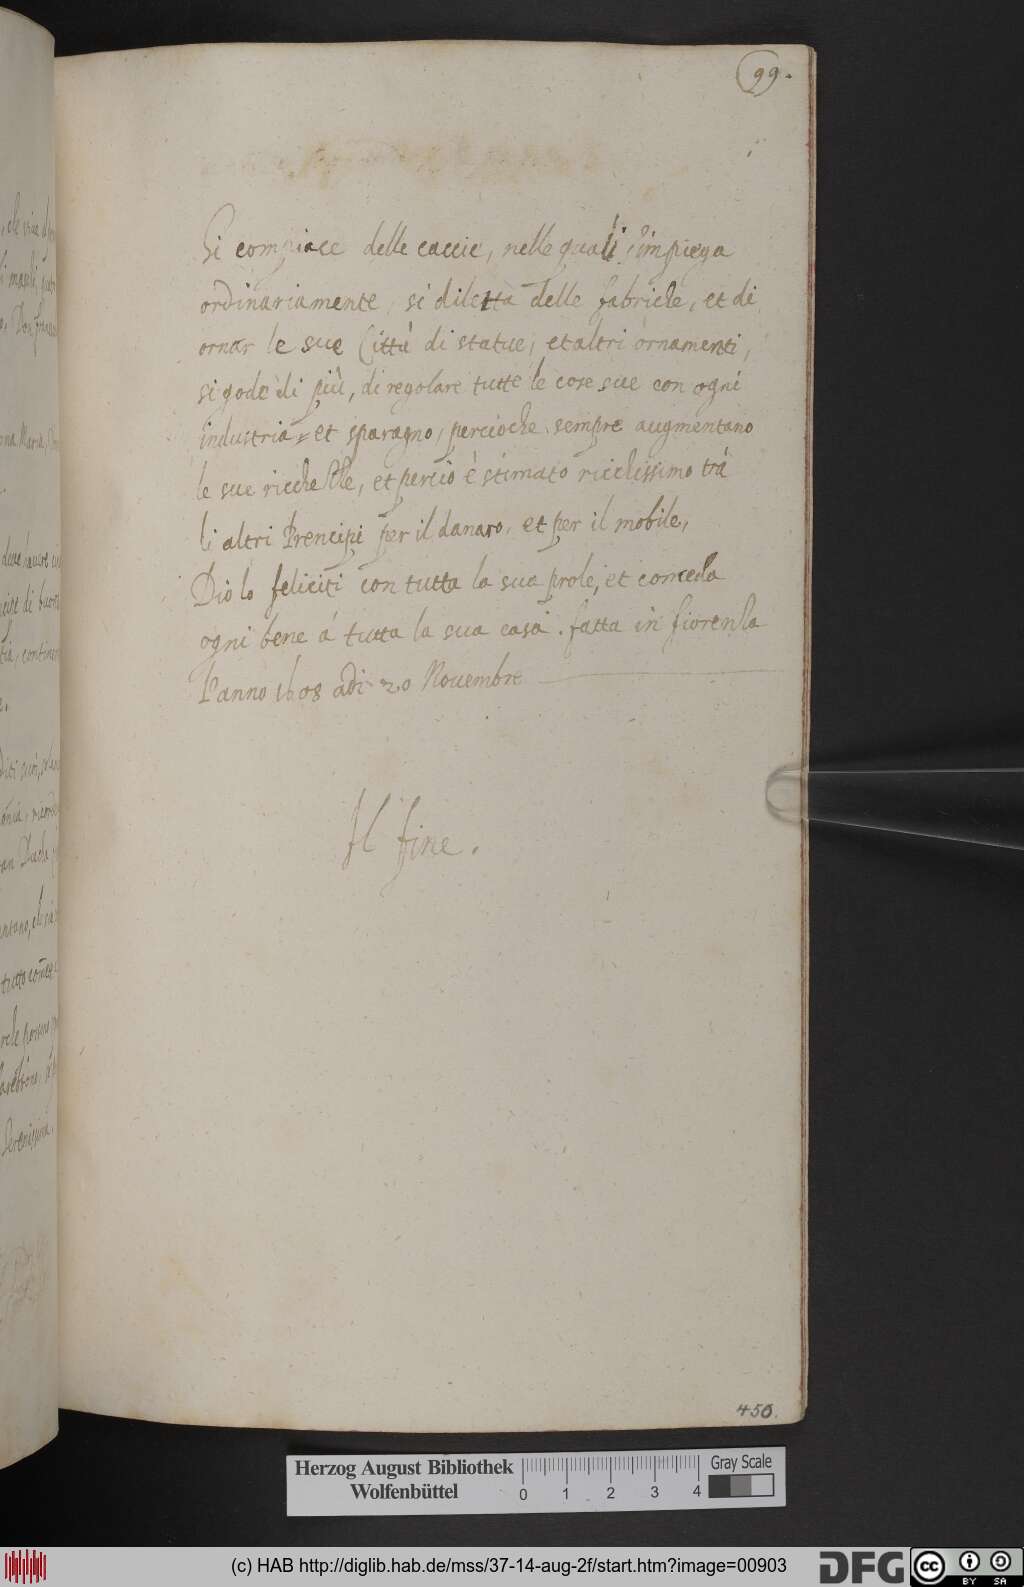 99.
Si compiace delle caccie, nelle quali s'impiega
ordinariamente, si diletta delle fabriche, et di
ornar le sue Città di statue, et altri ornamenti,
si gode di più, di regolare tutte le cose sue con ogni
industria, et sparagno, percioche sempre augmentano
le sue ricchezze, et perciò è stimato ricchissimo trà
li altri Prencipi per il danaro, et per il mobile,
Dio lo feliciti con tutta la sua prole, et conceda
ogni bene á tutta la sua casa. fatta in fiorenza
l'anno 1608 adi 20 Nouembre
Il fine.
450.
Herzog August Bibliothek
Wolfenbüttel
0 1 2 3 4
Gray Scale
(c) HAB http://diglib.hab.de/mss/37-14-aug-2f/start.htm?image=00903
DFG
cc BY SA